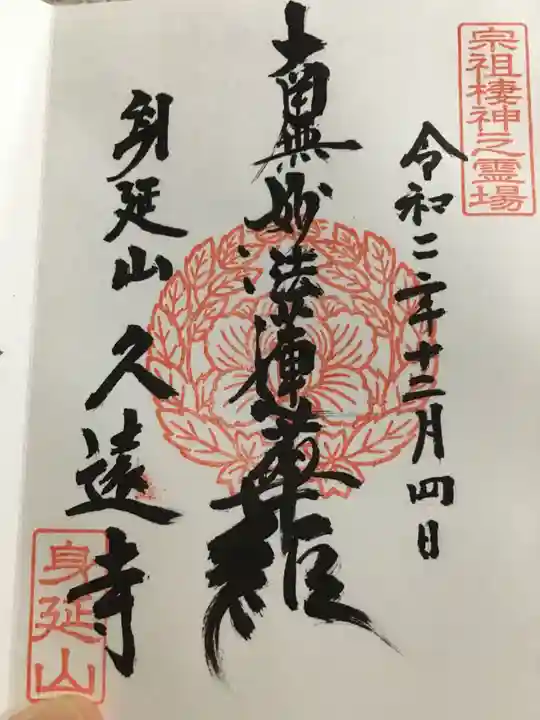 宗祖棲神之霊場
令和二年十二月四日
南無妙法蓮華経
身延山久遠寺
身延山